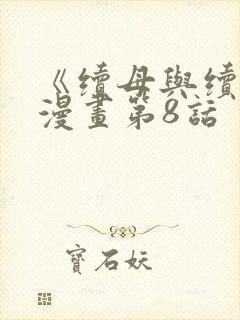 《續母與續
漫畫第8話
寶石妖